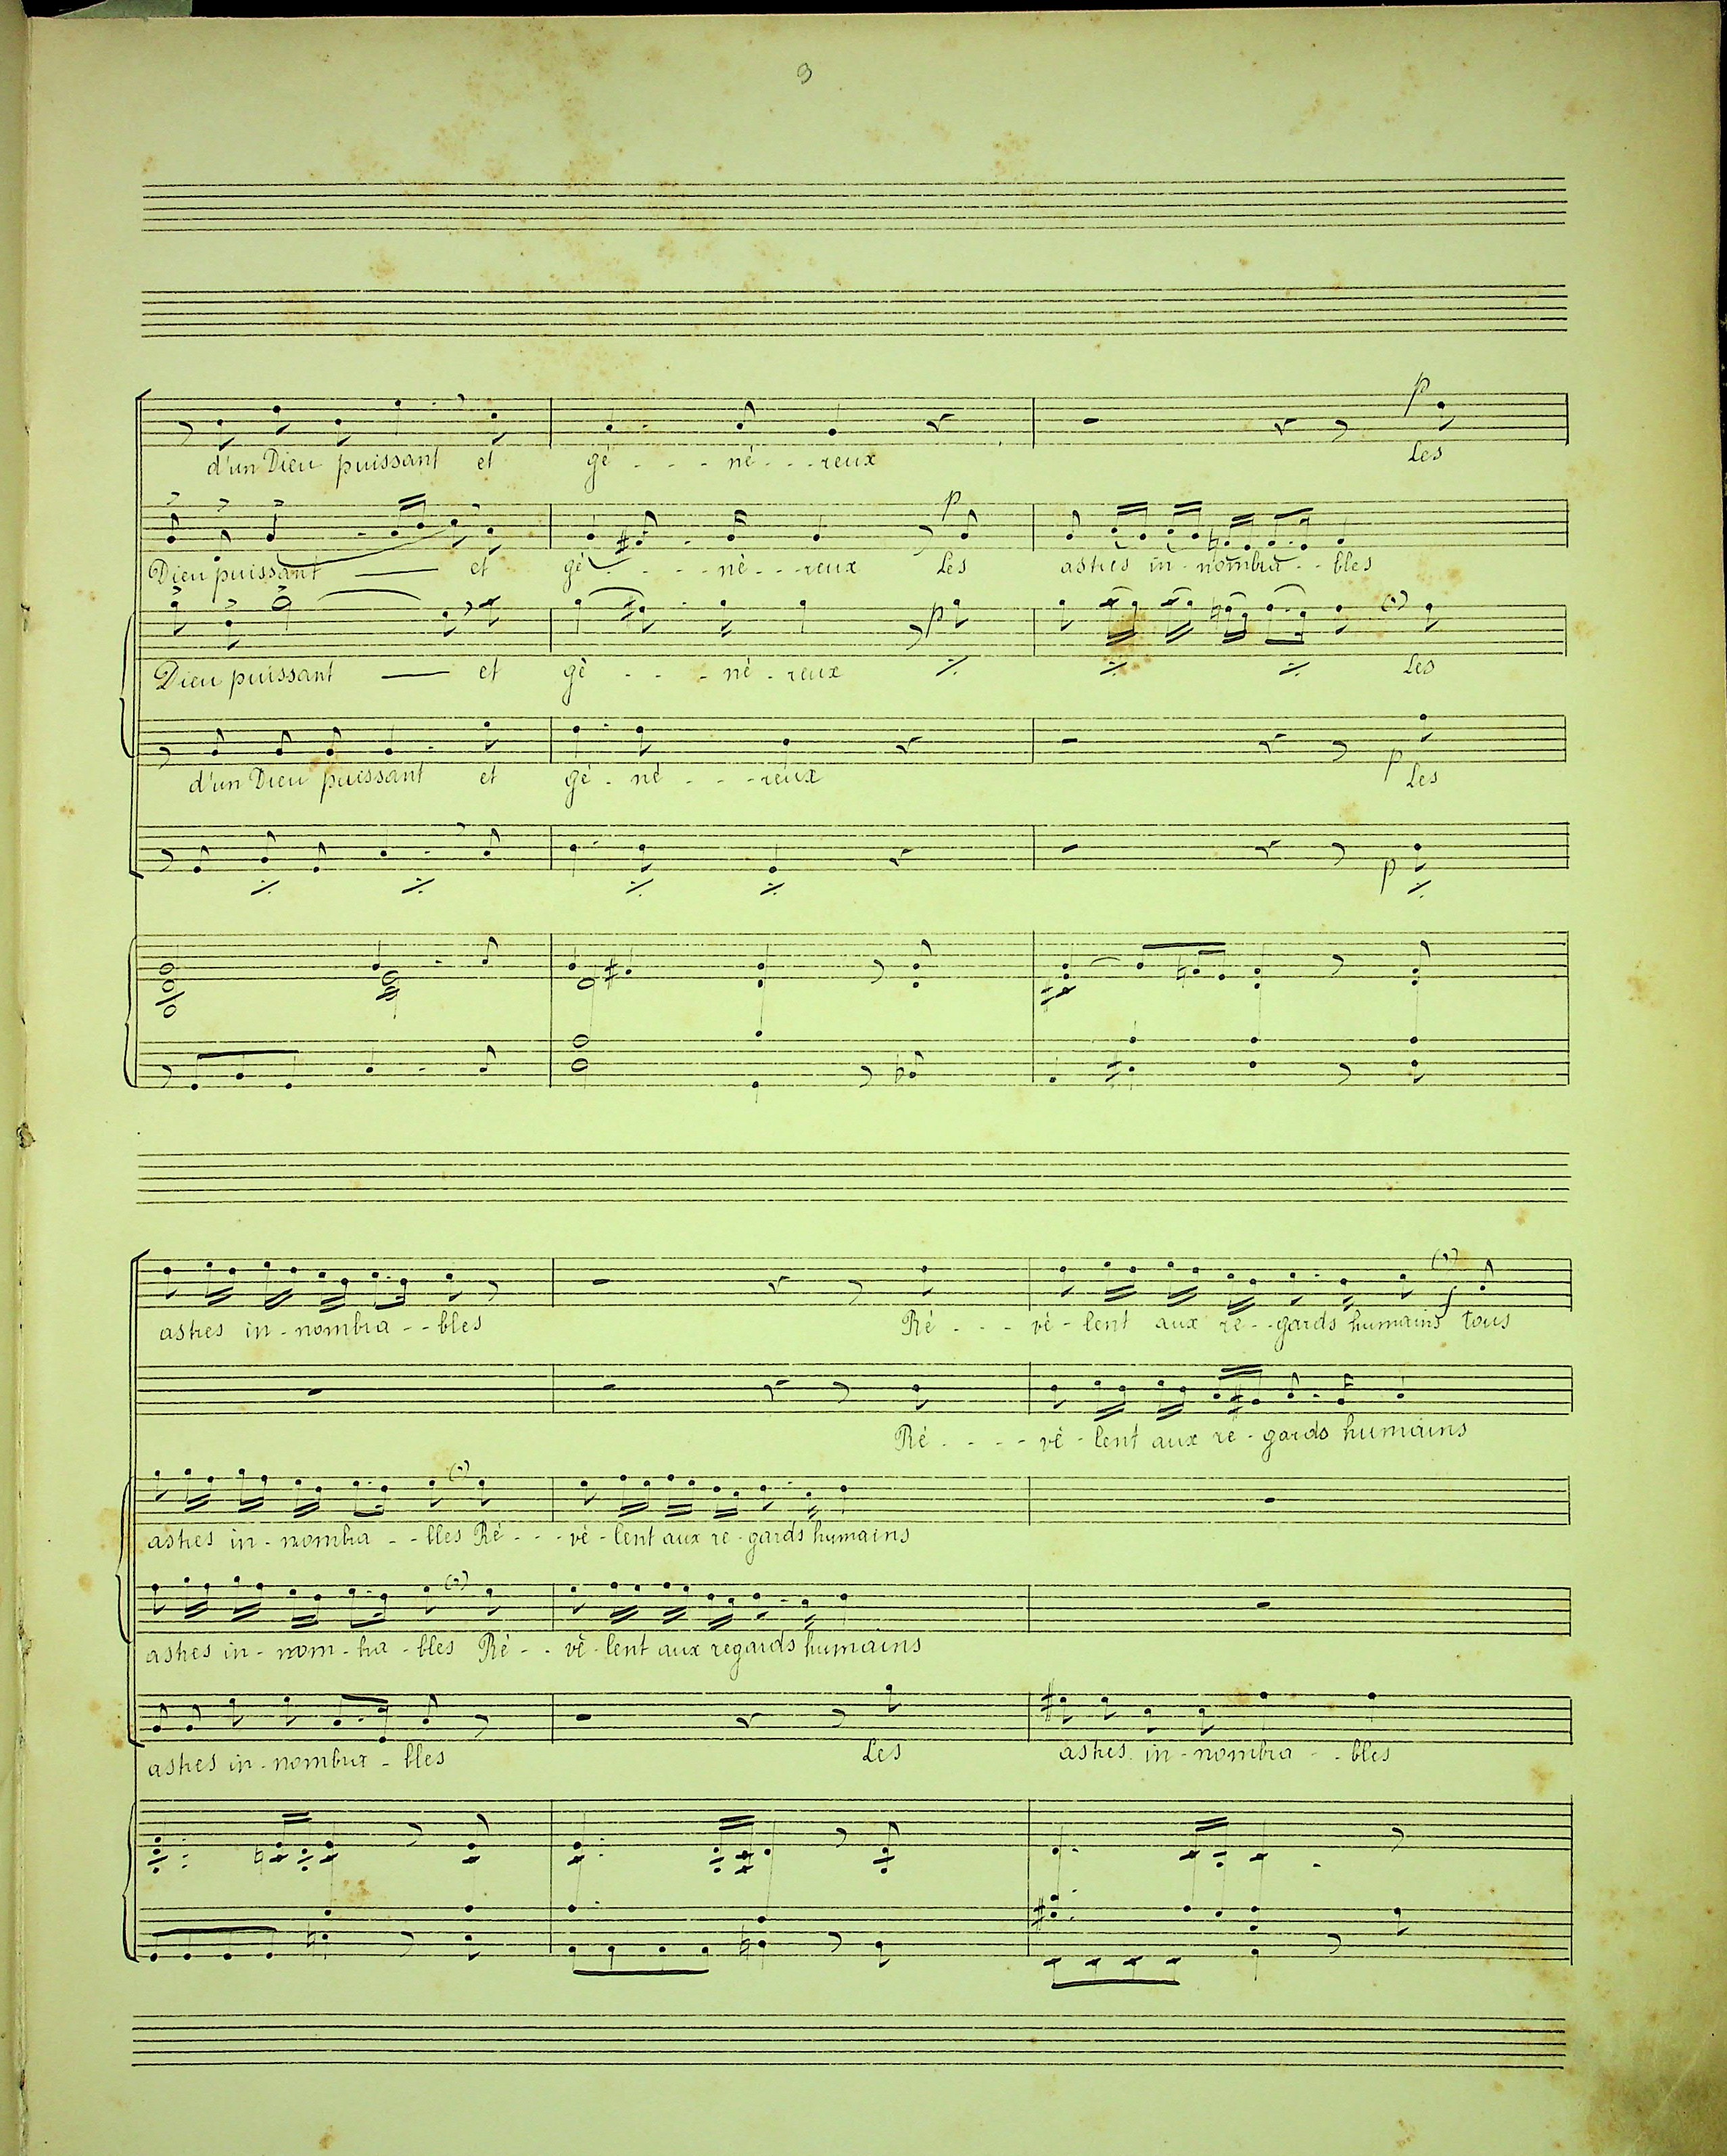 9
p
d'un Dieu puissant et gé - - - né - - - reux Les
p
Dieu puissant —— et gé - - - né - - - reux Les astres in - nombra - - bles
p
Dieu puissant —— et gé - - - né - reux Les
d'un Dieu puissant et gé - né - - - reux p Les
p
astres in - nombra - - bles Ré - - - vè - lent aux re - - gards humains f tous
Ré - - - - vè - lent aux re - gards humains
astres in - nombra - - bles Ré - - - vè - lent aux re - gards humains
astres in - nom - bra - bles Ré - - vè - lent aux regards humains
astres in - nombra - bles Les astres in - nombra - - bles